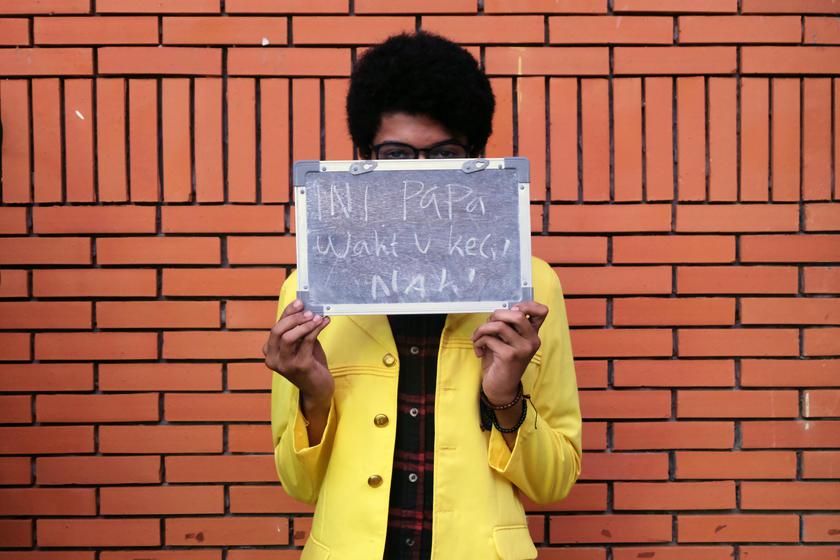 INI PAPA
Waktu kecil
NAK!